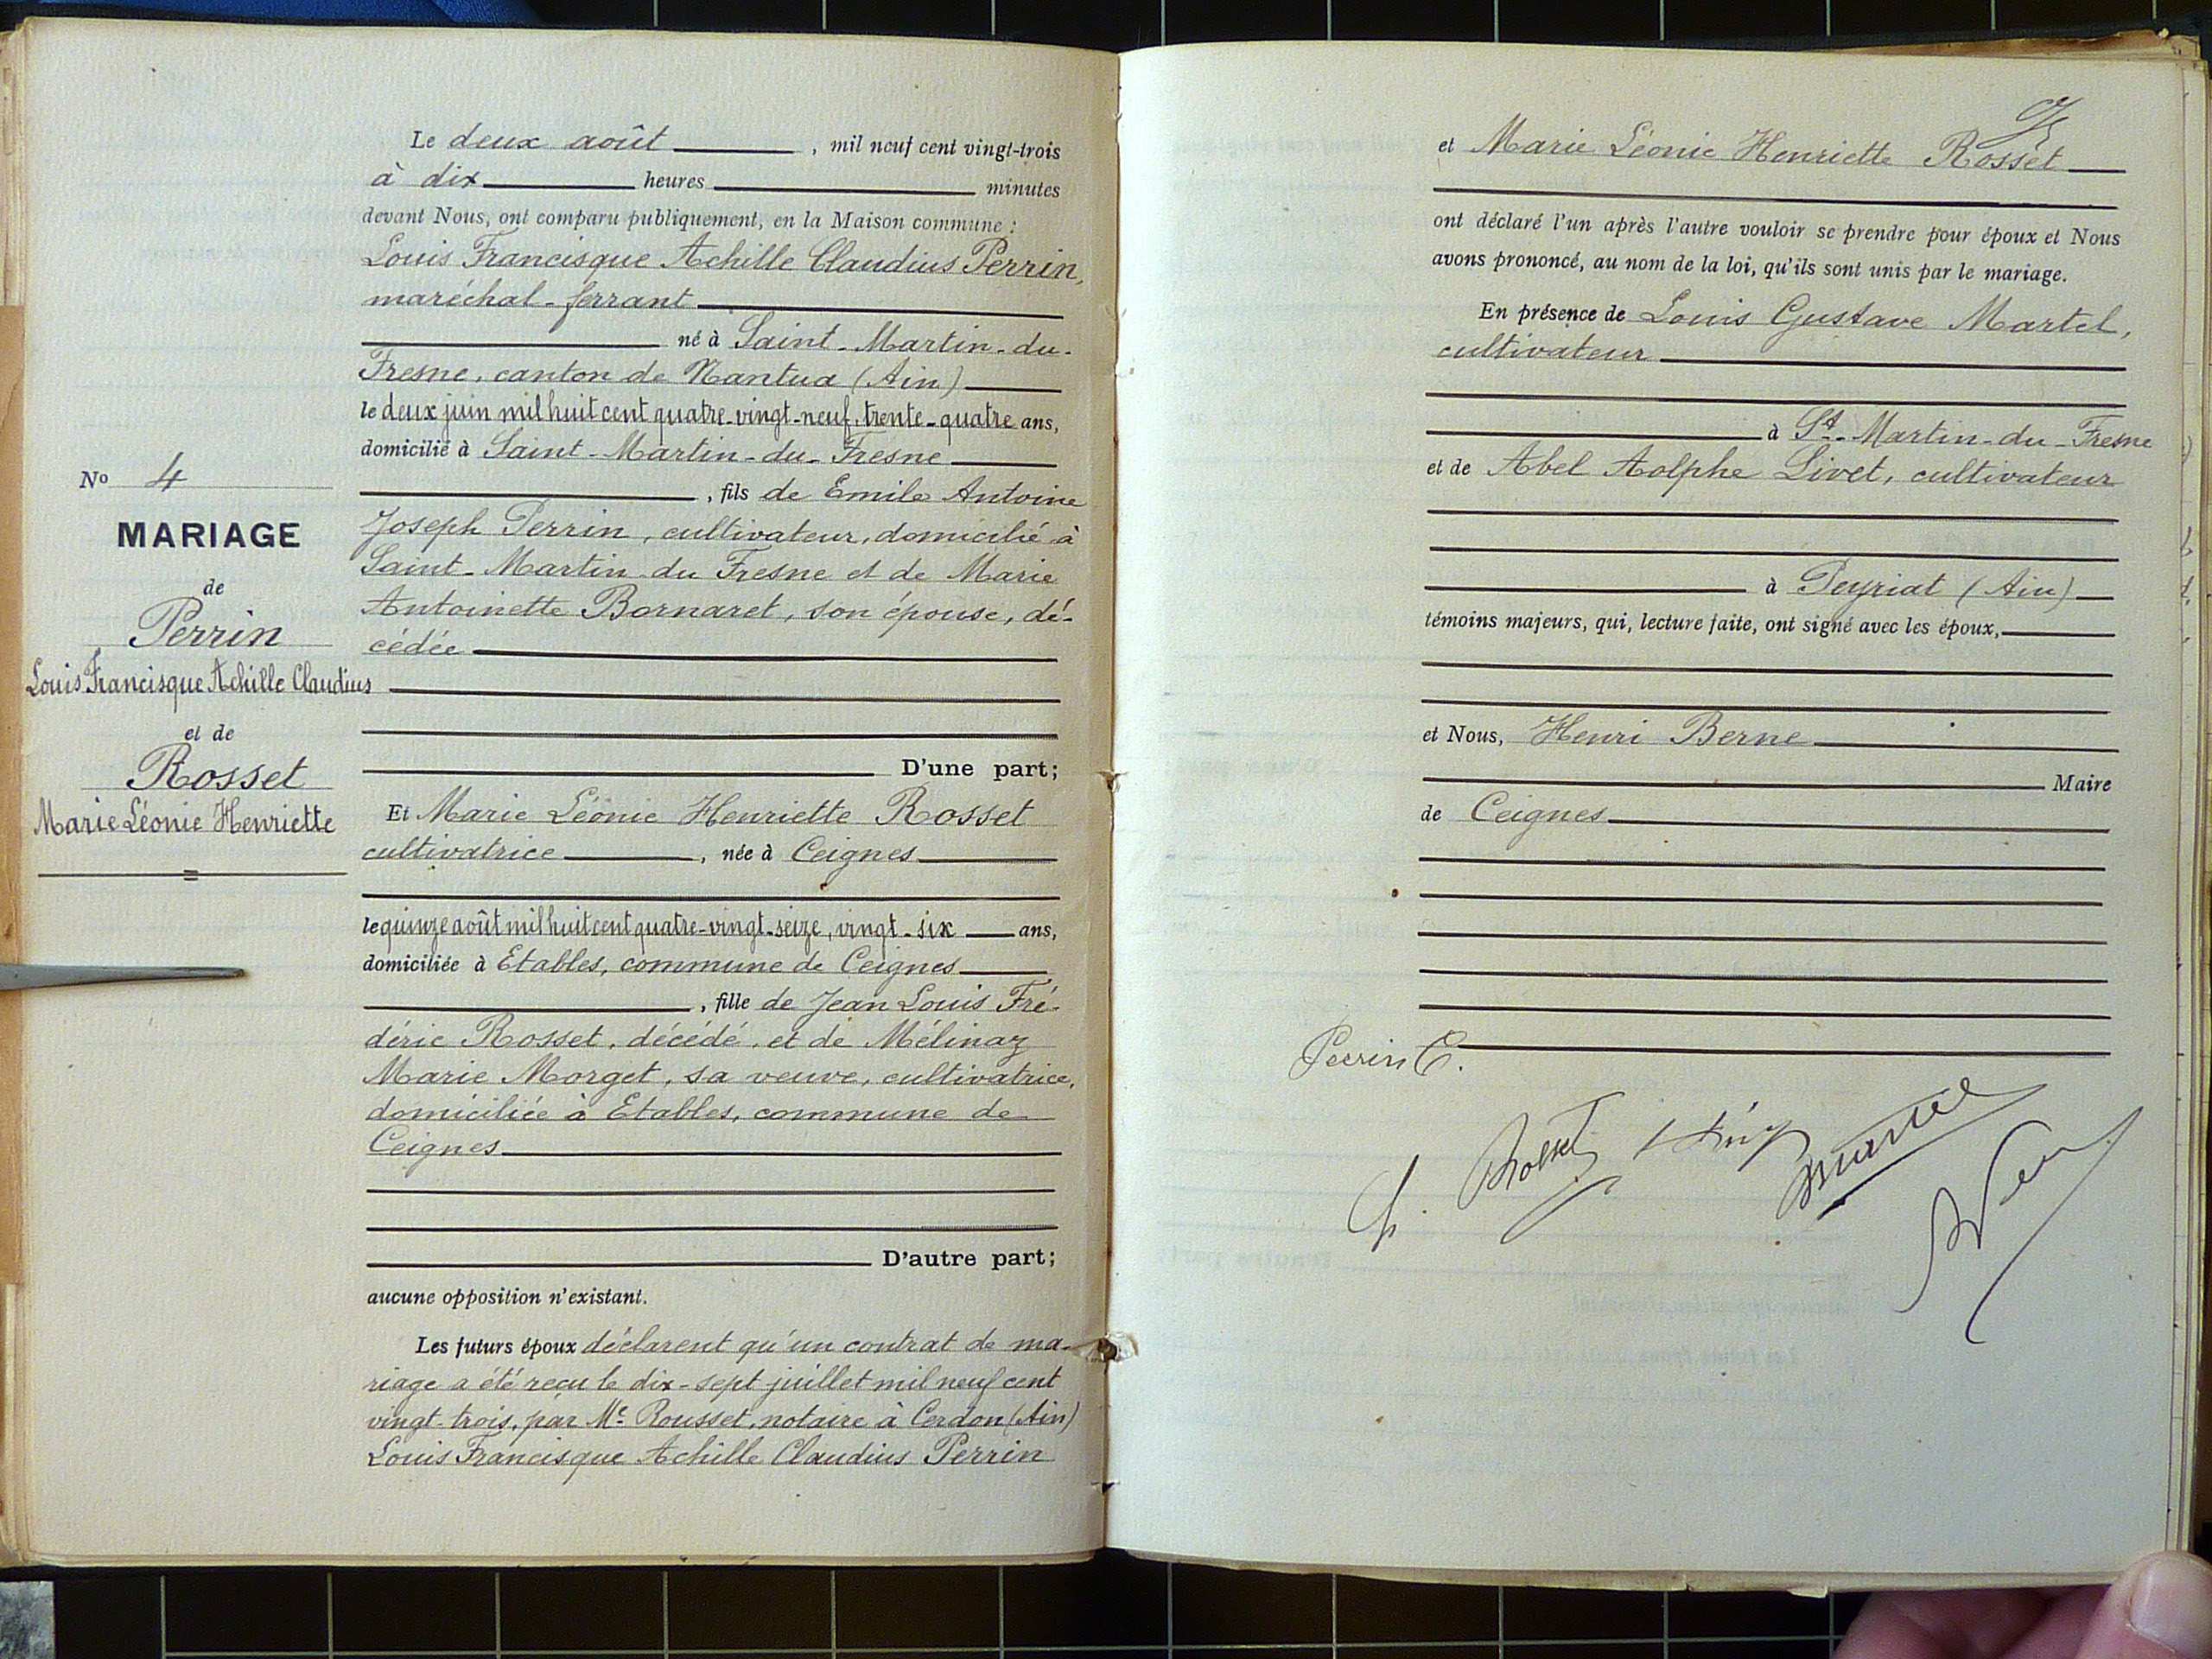 N° 4
MARIAGE
de
Perrin
Louis Francisque Achille Claudius
et de
Rosset
Marie Léonie Henriette
Le deux août , mil neuf cent vingt-trois
à dix heures minutes
devant Nous, ont comparu publiquement, en la Maison commune :
Louis Francisque Achille Claudius Perrin,
maréchal-ferrant
né à Saint-Martin-du-
Fresne, canton de Nantua (Ain)
le deux juin mil huit cent quatre-vingt-neuf, trente-quatre ans,
domicilié à Saint-Martin-du-Fresne
, fils de Emile Antoine
Joseph Perrin, cultivateur, domicilié à
Saint-Martin-du Fresne et de Marie
Antoinette Bornaret, son épouse, dé-
cédée
D'une part;
Et Marie Léonie Henriette Rosset
cultivatrice , née à Ceignes
le quinze août mil huit cent quatre-vingt-seize, vingt-six ans,
domiciliée à Etables, commune de Ceignes
, fille de Jean Louis Fré-
déric Rosset, décédé, et de Mélinaz
Marie Morget, sa veuve, cultivatrice,
domiciliée à Etables, commune de
Ceignes
D'autre part;
aucune opposition n'existant.
Les futurs époux déclarent qu'un contrat de ma-
riage a été reçu le dix-sept juillet mil neuf cent
vingt-trois, par Me Rousset, notaire à Cerdon (Ain)
Louis Francisque Achille Claudius Perrin
et Marie Léonie Henriette Rosset
ont déclaré l'un après l'autre vouloir se prendre pour époux et Nous
avons prononcé, au nom de la loi, qu'ils sont unis par le mariage.
En présence de Louis Gustave Martel,
cultivateur
à St-Martin-du-Fresne
et de Abel Aolphe Livet, cultivateur
à Peyriat (Ain)
témoins majeurs, qui, lecture faite, ont signé avec les époux,
et Nous, Henri Berne
Maire
de Ceignes
Perrin C.
Rosset
Martel